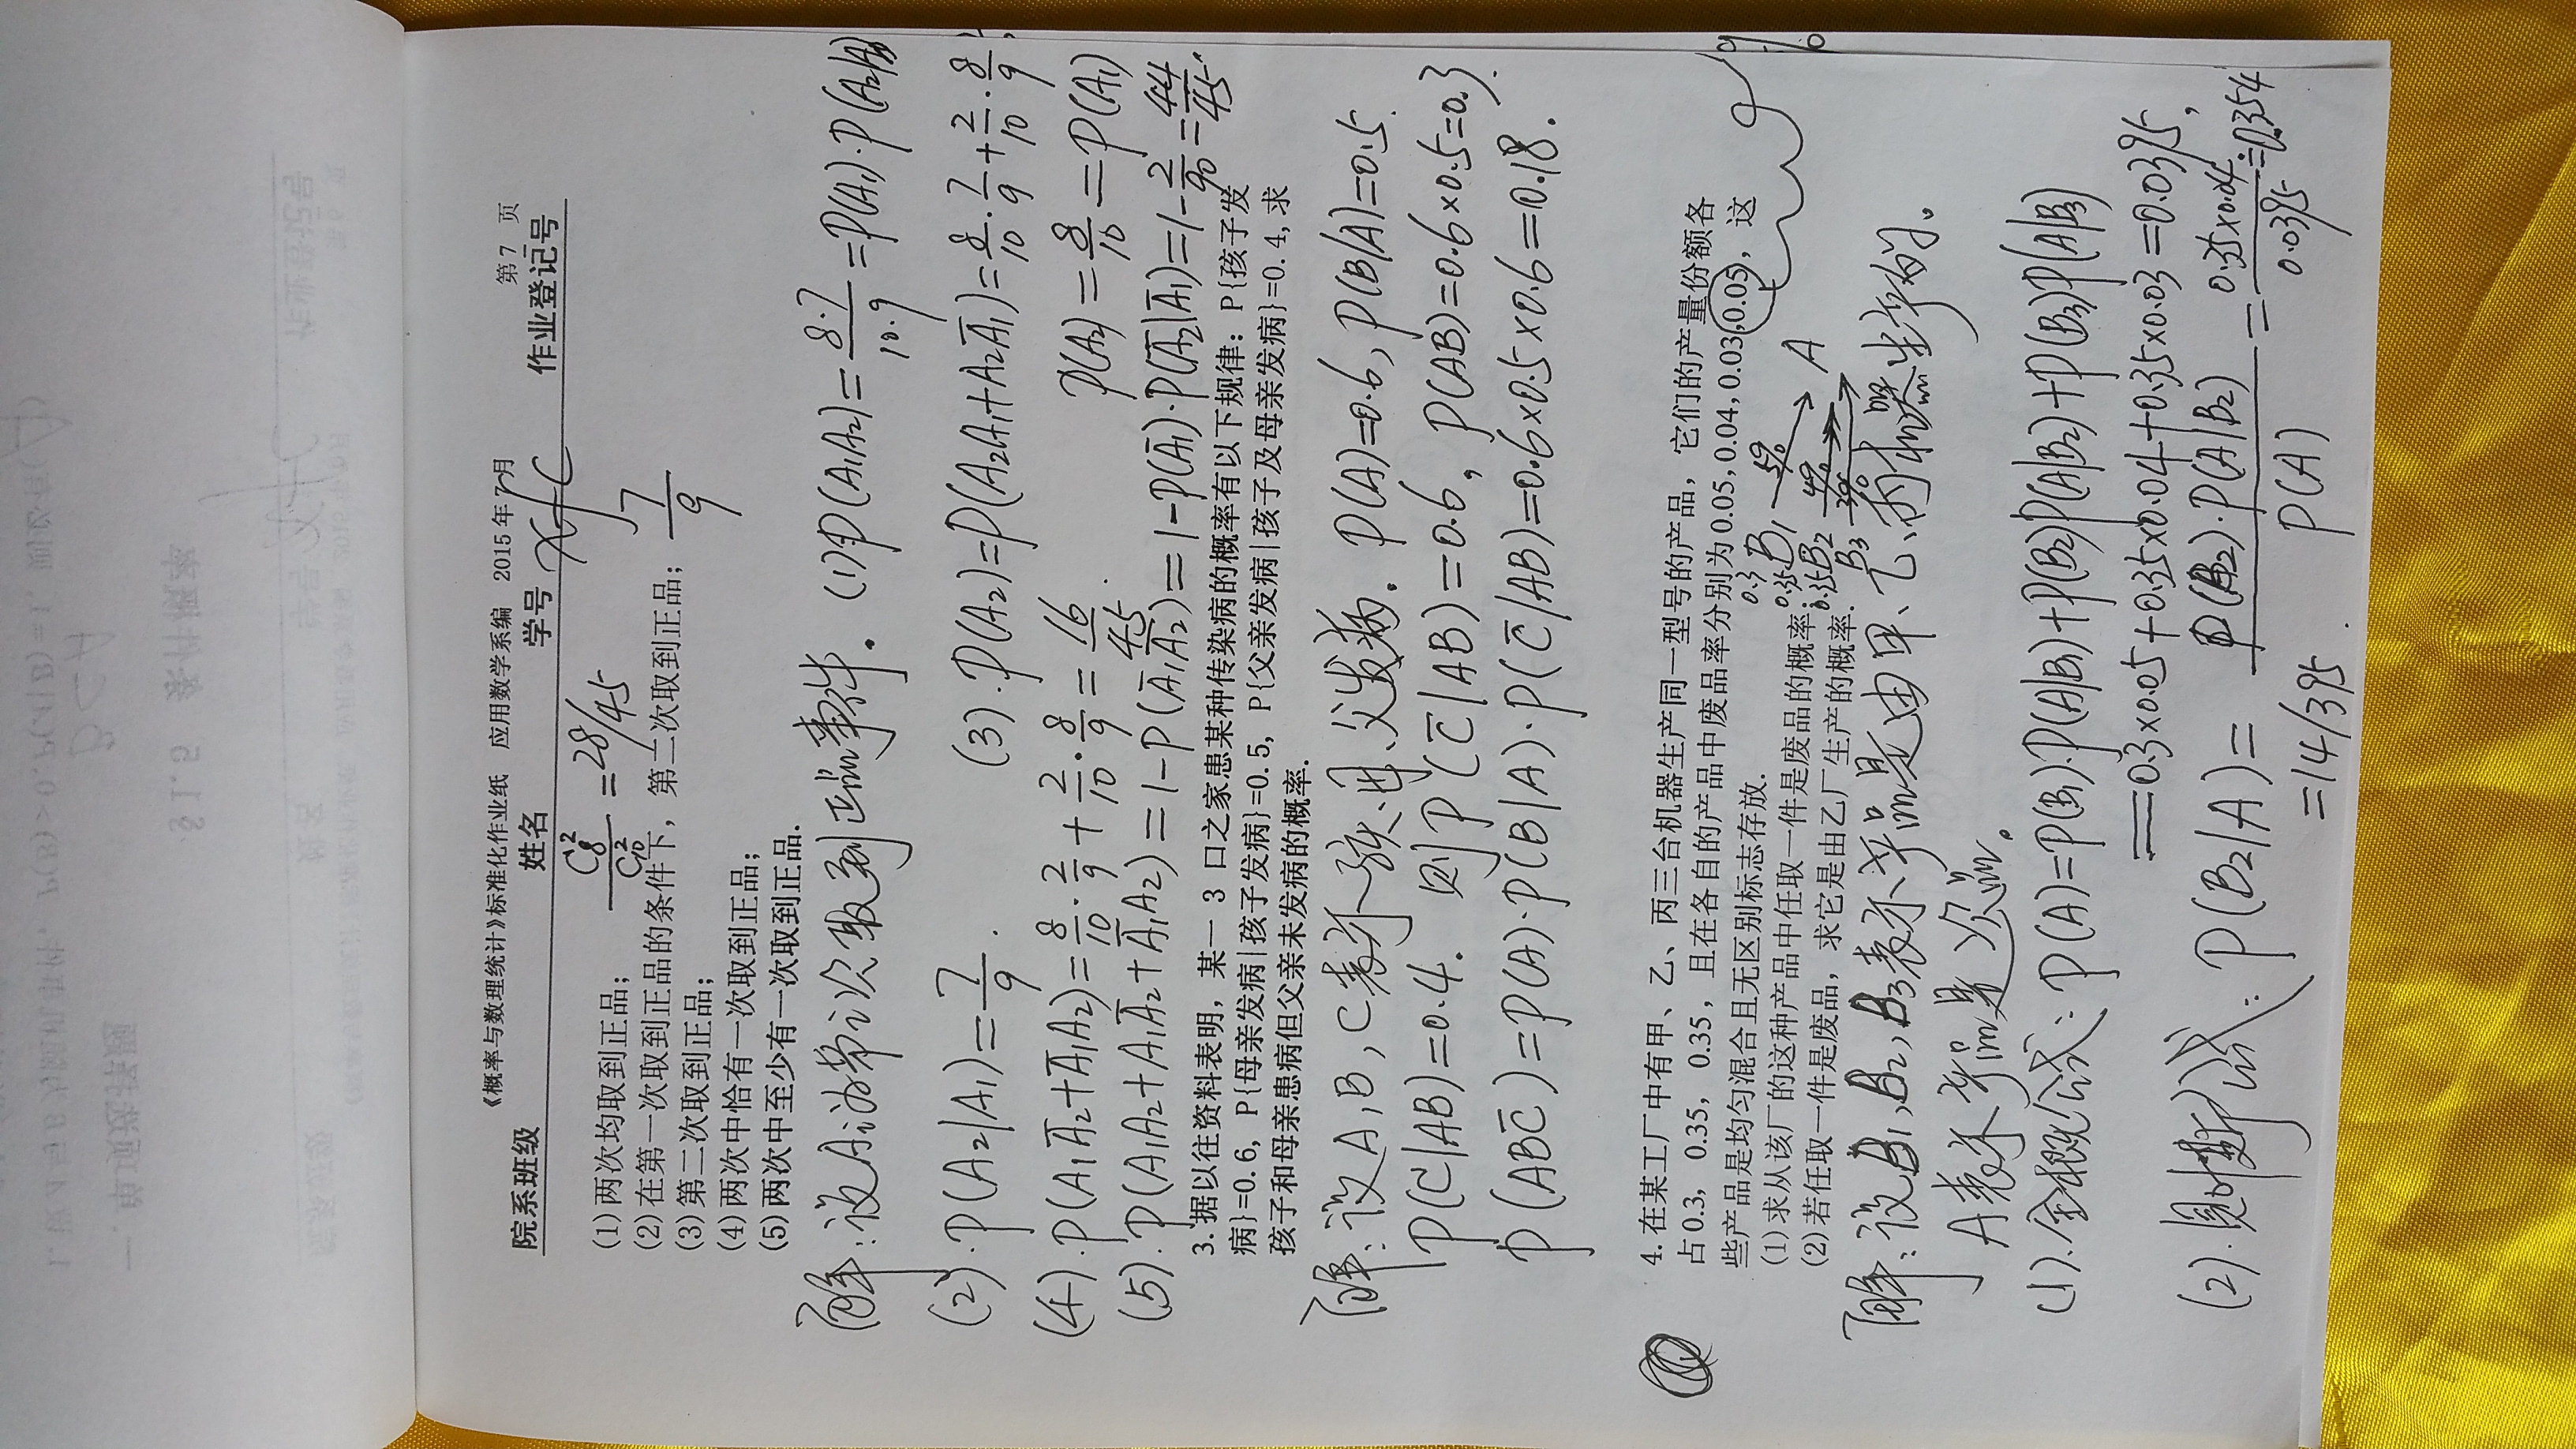 《概率与数理统计》标准化作业纸 应用数学系编 2015 年 7 月 第 7 页
院系班级 姓名 学号 作业登记号
(1)两次均取到正品; C₈²/C₁₀² = 28/45
(2)在第一次取到正品的条件下, 第二次取到正品; 7/9
(3)第二次取到正品;
(4)两次中恰有一次取到正品;
(5)两次中至少有一次取到正品.
解:设Aᵢ为第i次取到正品事件. (1)P(A₁A₂)=8·7/10·9=P(A₁)·P(A₂|A₁)
(2).P(A₂|A₁)=7/9. (3).P(A₂)=P(A₂A₁+A₂A̅₁)=8/10·7/9+2/10·8/9
(4).P(A₁A̅₂+A̅₁A₂)=8/10·2/9+2/10·8/9=16/45. P(A₂)=8/10=P(A₁)
(5).P(A₁A₂+A₁A̅₂+A̅₁A₂)=1-P(A̅₁A̅₂)=1-P(A̅₁)·P(A̅₂|A̅₁)=1-2/90=44/45.
3.据以往资料表明, 某一 3 口之家患某种传染病的概率有以下规律: P{孩子发
病}=0.6, P{母亲发病|孩子发病}=0.5, P{父亲发病|孩子及母亲发病}=0.4, 求
孩子和母亲患病但父亲未发病的概率.
解:设A,B,C表示孩、母、父发病. P(A)=0.6, P(B|A)=0.5.
P(C|AB)=0.4. 则P(C̅|AB)=0.6, P(AB)=0.6×0.5=0.3.
P(ABC̅)=P(A)·P(B|A)·P(C̅|AB)=0.6×0.5×0.6=0.18.
4.在某工厂中有甲、乙、丙三台机器生产同一型号的产品, 它们的产量份额各
占0.3, 0.35, 0.35, 且在各自的产品中废品率分别为0.05,0.04,0.03,0.05), 这
些产品是均匀混合且无区别标志存放.
(1)求从该厂的这种产品中任取一件是废品的概率;
(2)若任取一件是废品, 求它是由乙厂生产的概率.
0.3 B₁ 5% A
0.35 B₂ 4%
0.35 B₃ 3%
解:设B₁,B₂,B₃表示产品是由甲、乙、丙机器生产的。
A表示产品是次品。
(1).全概公式:P(A)=P(B₁).P(A|B₁)+P(B₂)P(A|B₂)+P(B₃)P(A|B₃)
=0.3×0.05+0.35×0.04+0.35×0.03=0.0395,
(2).贝叶斯公式:P(B₂|A)=P(B₂)·P(A|B₂)/P(A)=0.35×0.04/0.0395≐0.354
=14/395.